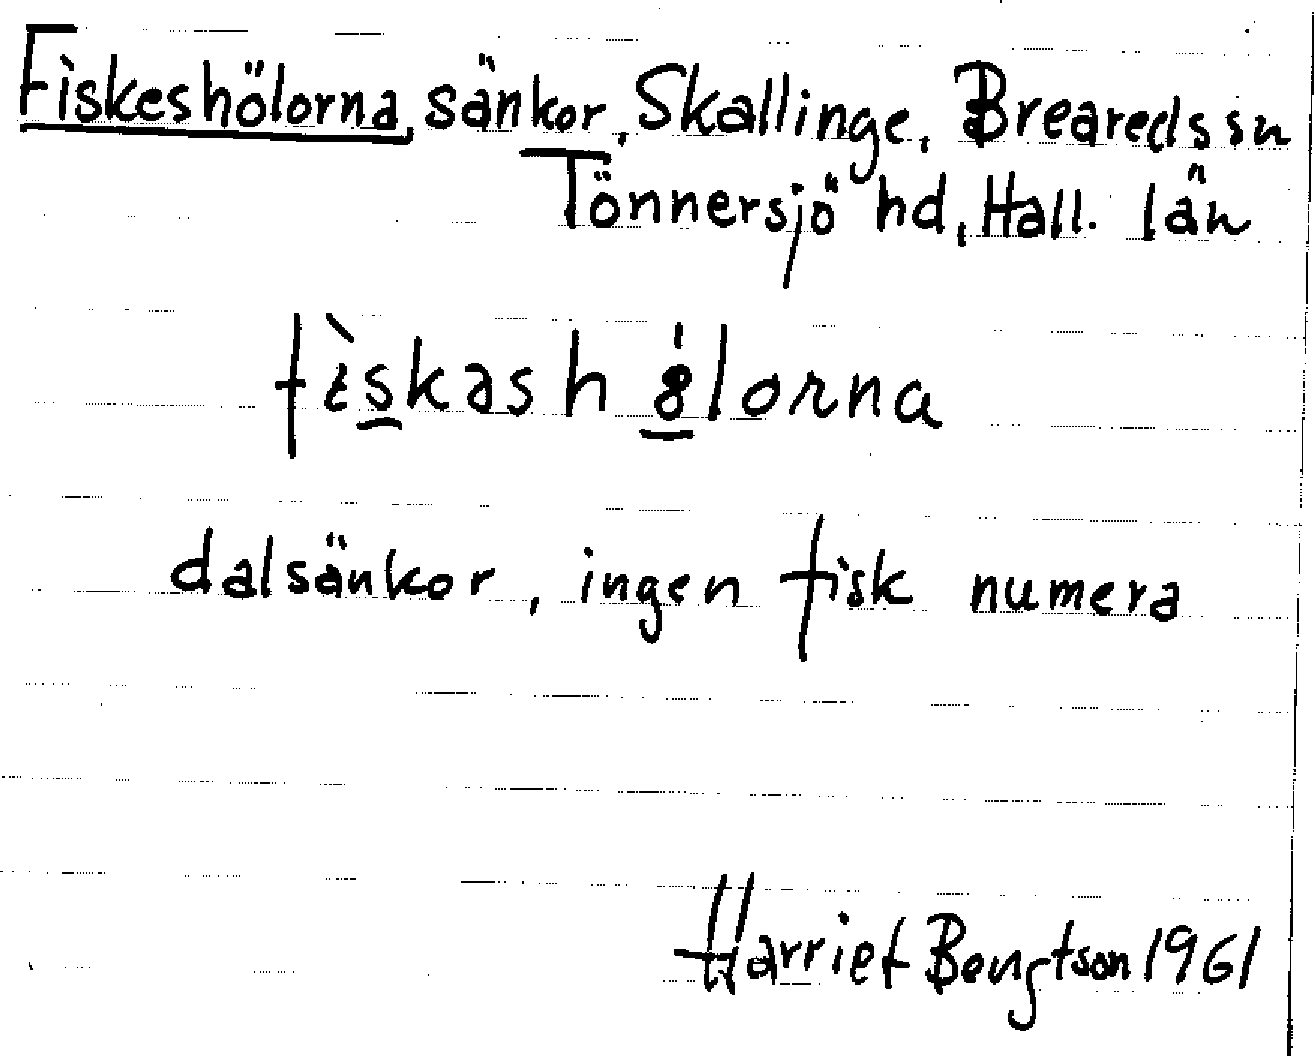 Fiskeshölorna, sänkor, Skallinge, Breareds sn
Tönnersjö hd, Hall. län
fìskashölorna
dalsänkor, ingen fisk numera
Harriet Bengtson 1961